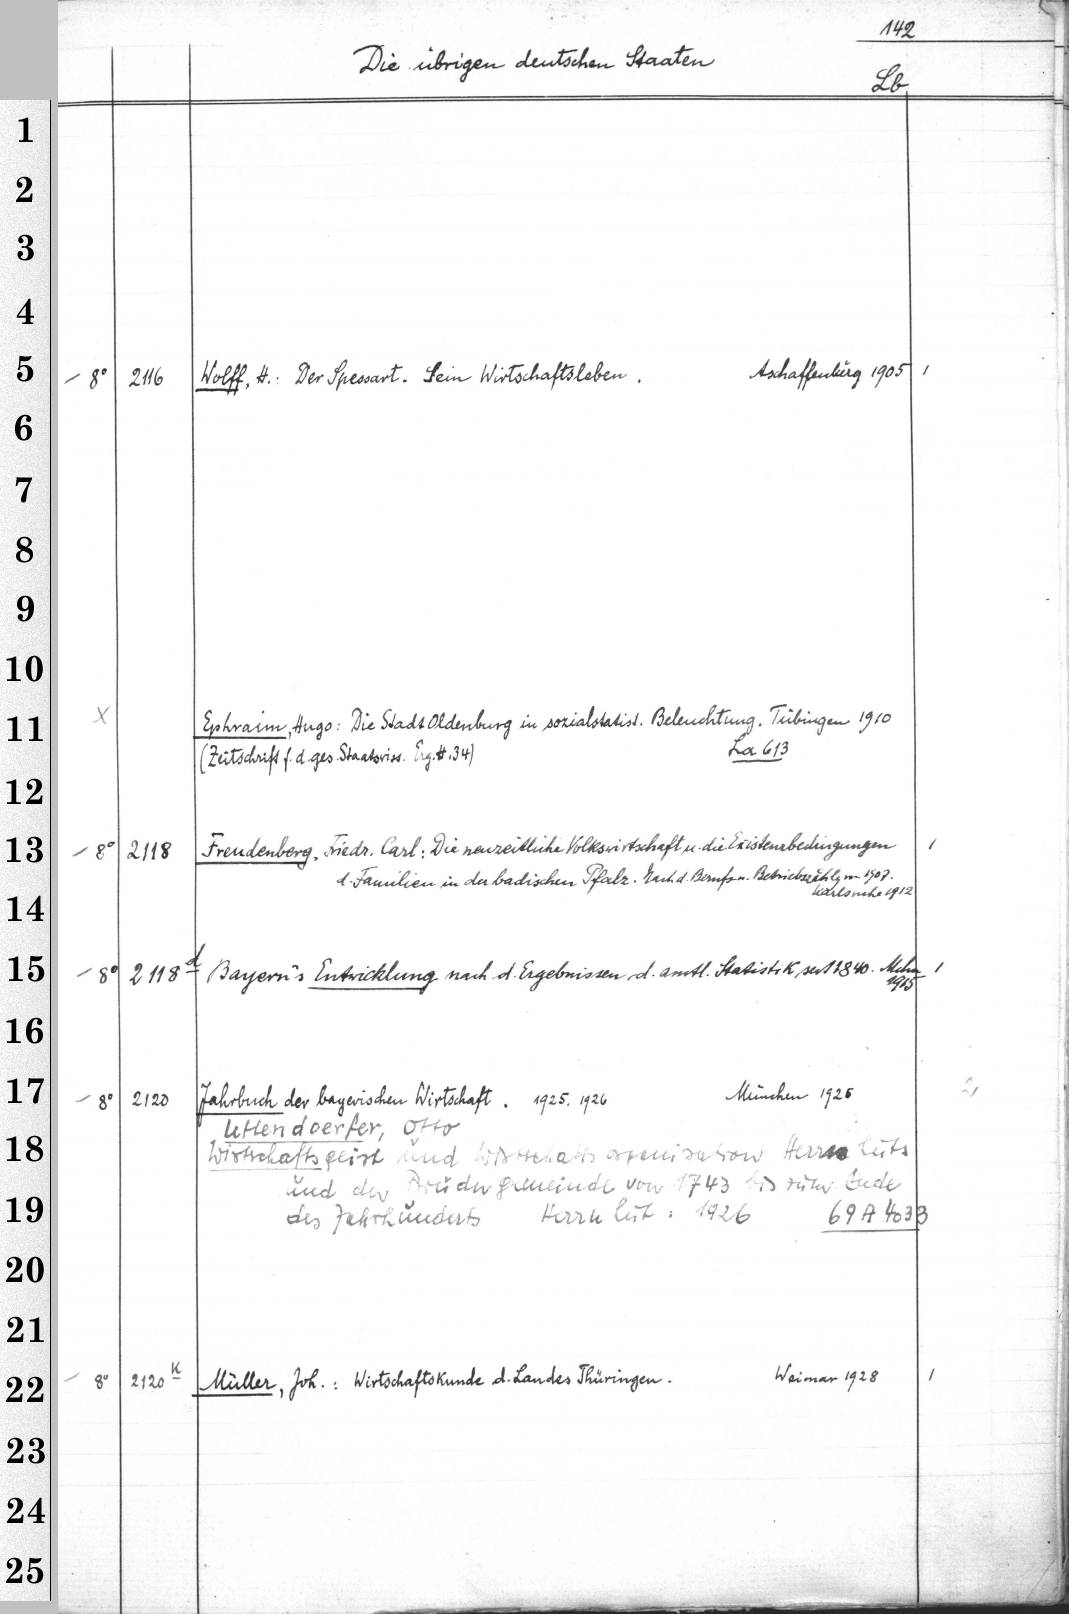 142
Die übrigen deutschen Staaten
Lb
1
2
3
4
5 – 8° 2116 Wolff, H.: Der Spessart. Sein Wirtschaftsleben. Aschaffenburg 1905 1
6
7
8
9
10
11 X Ephraim, Hugo: Die Stadt Oldenburg in sozialstatist. Beleuchtung. Tübingen 1910
(Zeitschrift f. d. ges. Staatswiss. Erg. H. 34) La 613
12
13 – 8° 2118 Freudenberg, Friedr. Carl: Die neuzeitliche Volkswirtschaft u. die Existenzbedingungen 1
d. Familien in der badischen Pfalz. Nach d. Berufs u. Betriebszählg v. 1907.
Karlsruhe 1912
14
15 – 8° 2118 d Bayern's Entwicklung nach d. Ergebnissen d. amtl. Statistik seit 1840. Mchn 1
1915
16
17 – 8° 2120 Jahrbuch der bayerischen Wirtschaft. 1925. 1926 München 1925 2
Uttendoerfer, Otto
18 Wirtschaftsgeist und Wirtschaftsorganisation Herrnhuts
und der Brüdergemeinde von 1743 bis zum Ende
19 des Jahrhunderts Herrnhut: 1926 69 A 4033
20
21
22 – 8° 2120 K Müller, Joh.: Wirtschaftskunde d. Landes Thüringen. Weimar 1928 1
23
24
25